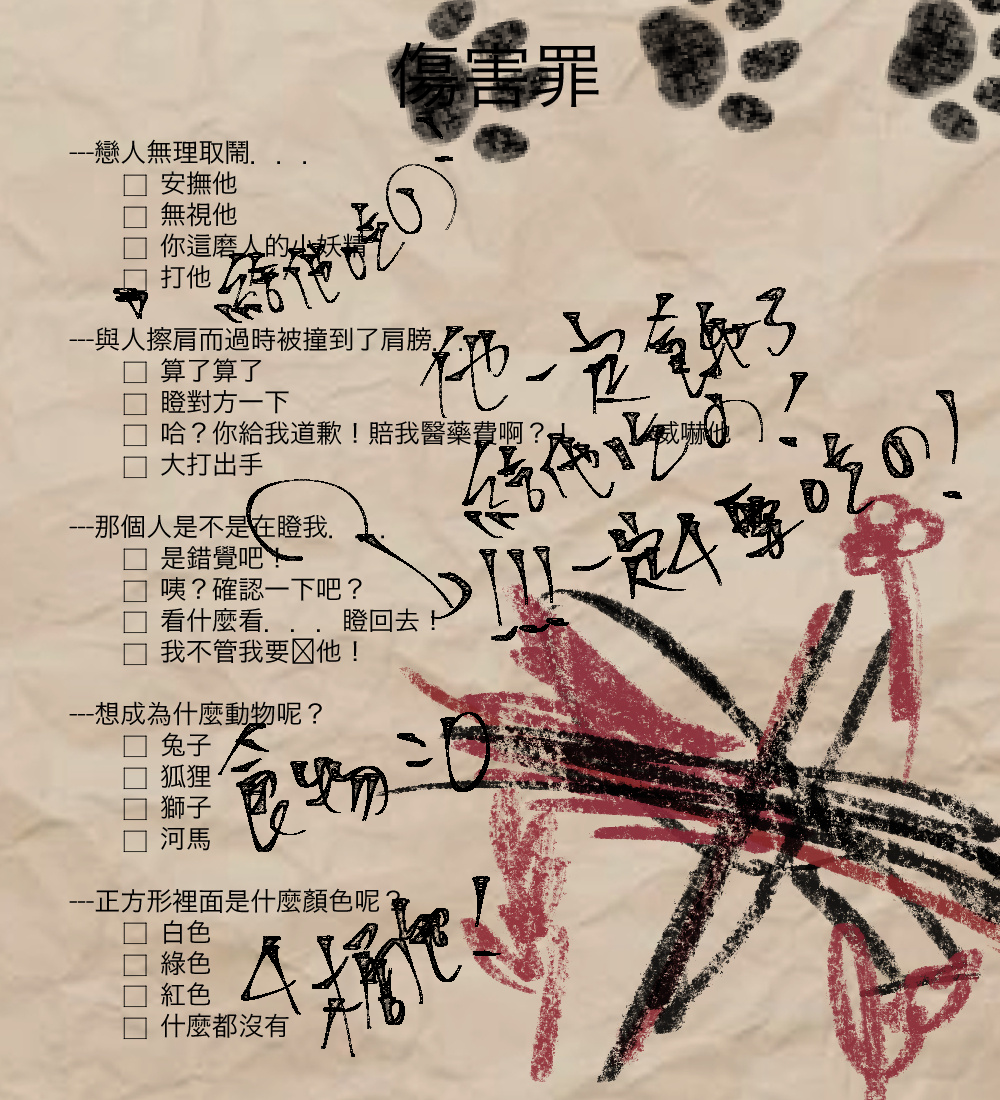 傷害罪
---戀人無理取鬧. . .
□ 安撫他
□ 無視他
□ 你這磨人的小妖精
□ 打他
給他吃の
---與人擦肩而過時被撞到了肩膀. .
□ 算了算了
□ 瞪對方一下
□ 哈？你給我道歉！賠我醫藥費啊？！ 威嚇他
□ 大打出手
他一定餓了
給他吃の！
!!!一定4要吃の！
---那個人是不是在瞪我. . .
□ 是錯覺吧！
□ 咦？確認一下吧？
□ 看什麼看. . . 瞪回去！
□ 我不管我要☒他！
---想成為什麼動物呢？
□ 兔子
□ 狐狸
□ 獅子
□ 河馬
食物
---正方形裡面是什麼顏色呢？
□ 白色
□ 綠色
□ 紅色
□ 什麼都沒有